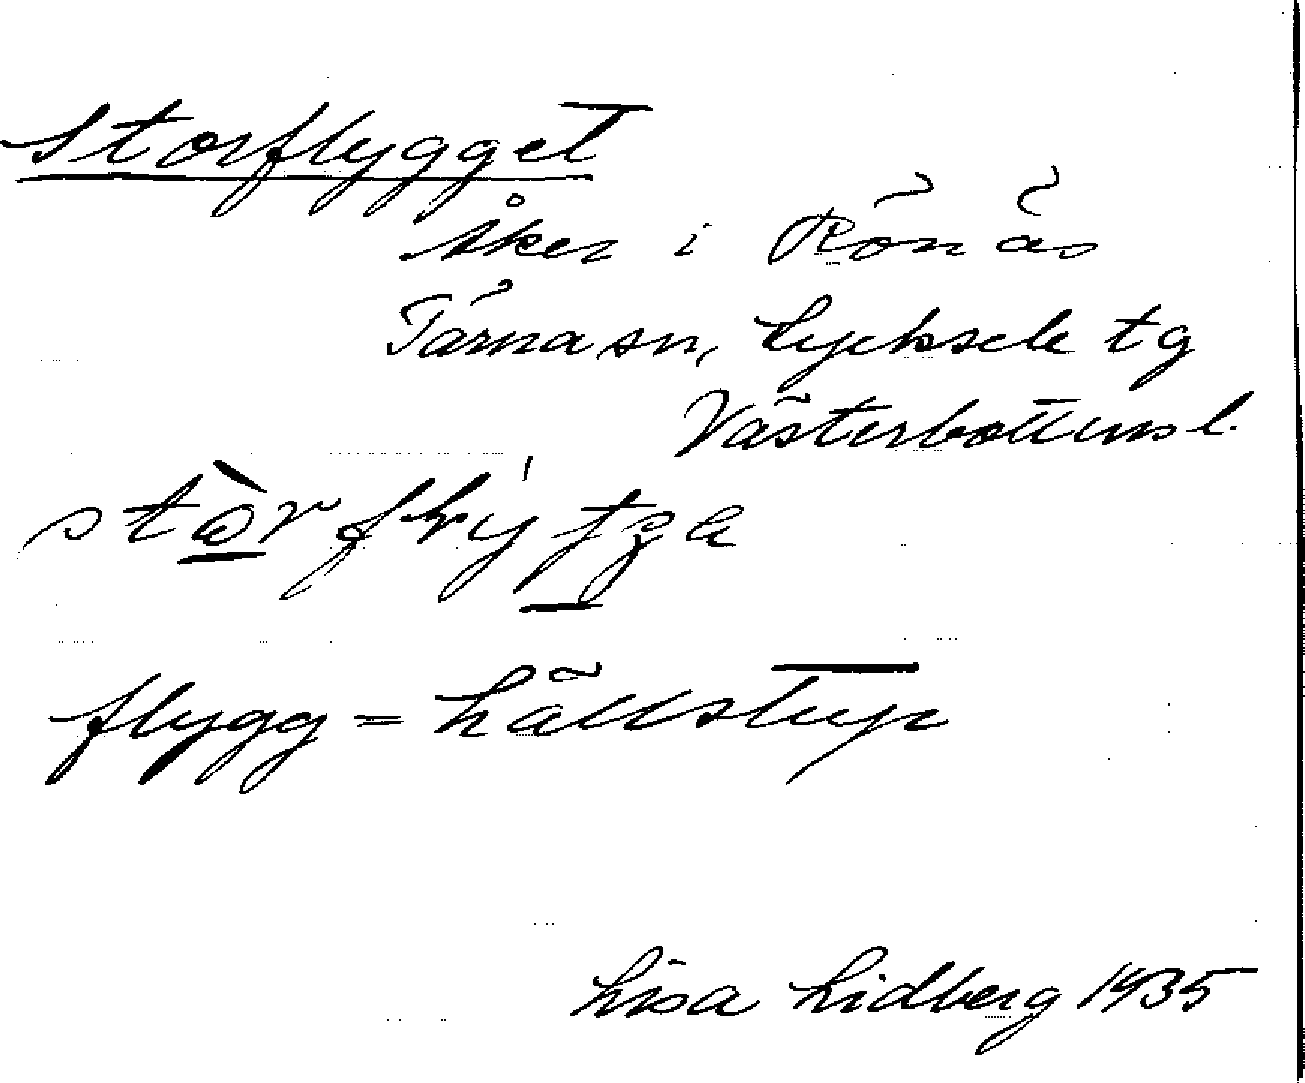 Storflygget
Åker i Rönäs
Tärna sn, Lycksele tg
Västerbottens l.
flygg = hällstup
Lisa Lidberg 1935